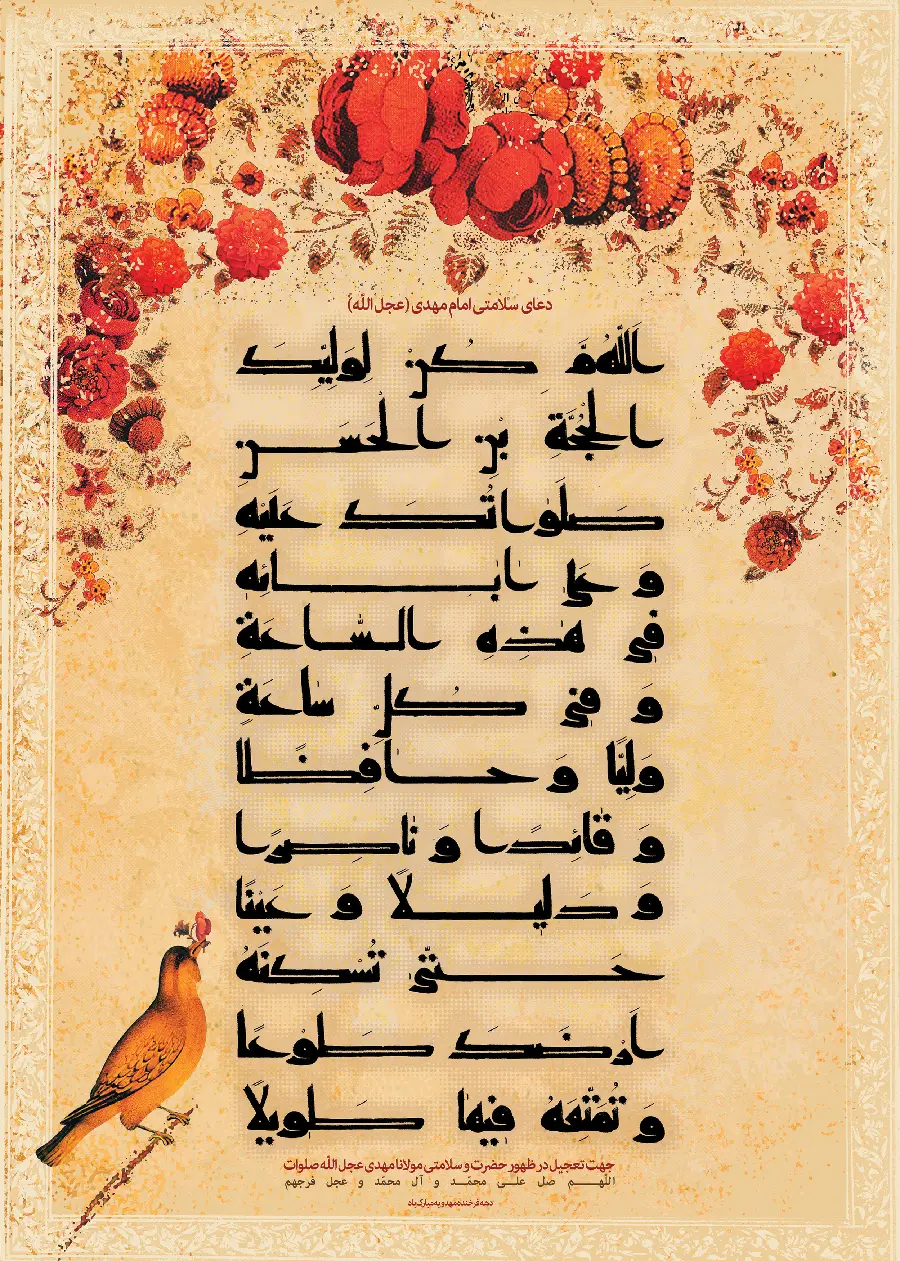 دعای سلامتی امام مهدی (عجل الله)
اَللّهُمَّ کُنْ لِوَلِیِّکَ
الحُجَّةِ بْنِ الحَسَنِ
صَلَواتُکَ عَلَیْهِ
وَ عَلی ابائِهِ
فِی هذِهِ السّاعَةِ
وَ فِی کُلِّ ساعَةٍ
وَلِیًّا وَ حافِظًا
وَ قائِدًا وَ ناصِرًا
وَ دَلیلًا وَ عَیْنًا
حَتّی تُسْکِنَهُ
اَرْضَکَ طَوْعًا
وَ تُمَتِّعَهُ فیها طَویلًا
جهت تعجیل در ظهور حضرت و سلامتی مولانا مهدی عجل الله صلوات
اللّهم صل علی محمّد و آل محمّد و عجل فرجهم
دهه فرخنده مهدویه مبارک باد